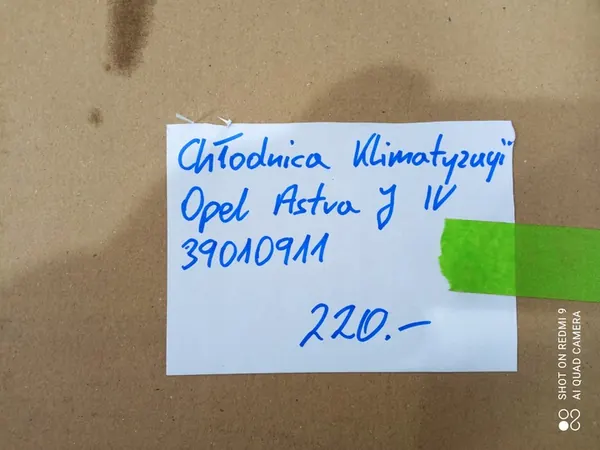 Chłodnica Klimatyzacji
Opel Astra J IV
39010911
220.-
SHOT ON REDMI 9
AI QUAD CAMERA